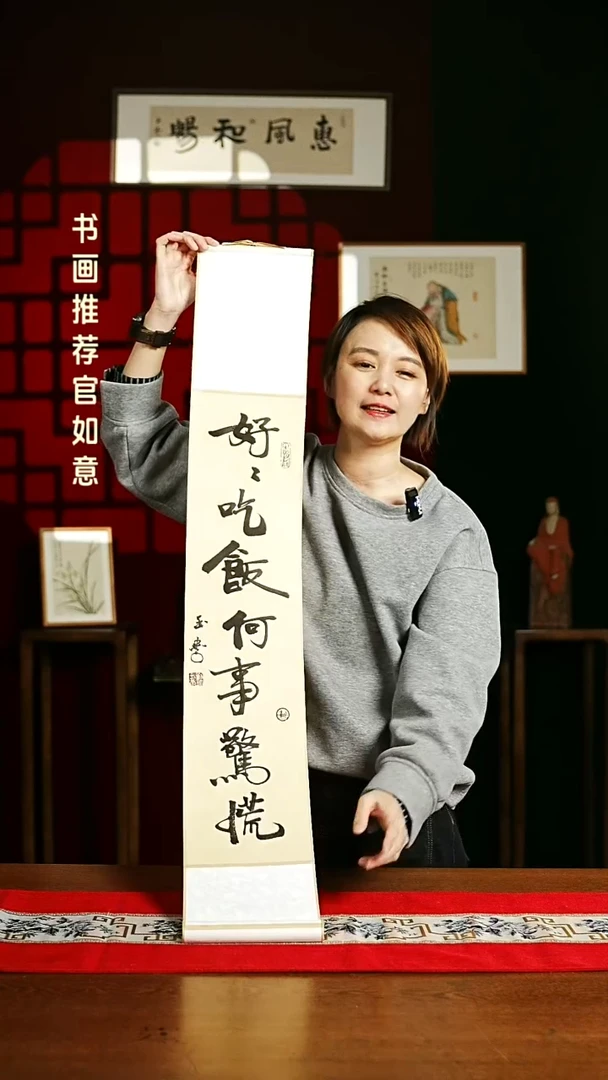 惠風和暢
书画推荐官如意
好〻吃飯何事驚慌